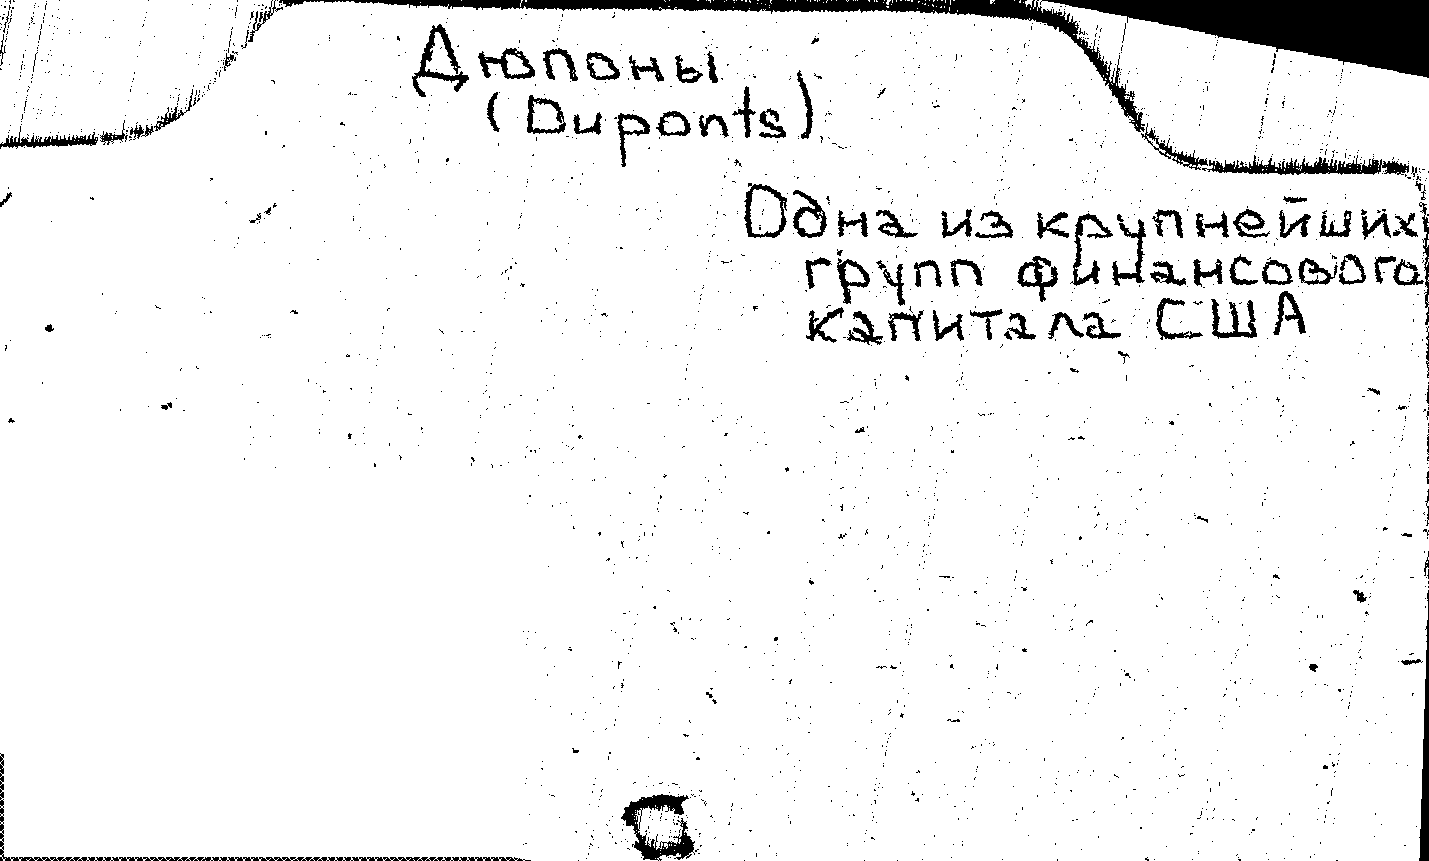 Дюпоны
(Duponts)
Одна из крупнейших
групп финансового
капитала США